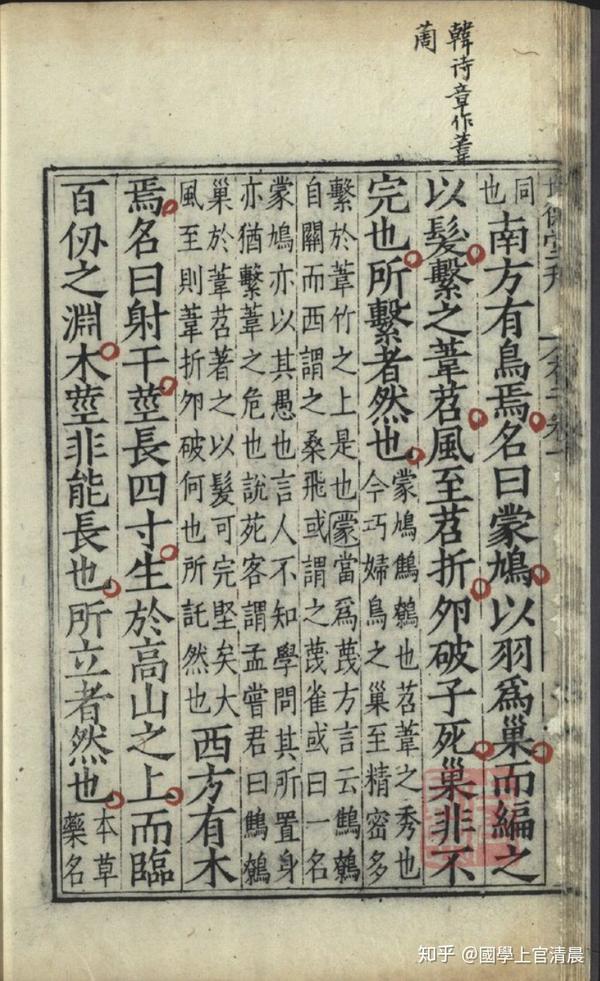 韓诗章作
同
也
南方有鳥焉名曰蒙鳩以羽爲巢而編之
以髮繫之葦苕風至苕折夘破子死巢非不
完也所繫者然也
蒙鳩鷦鷯也苕葦之秀也
今巧婦鳥之巢至精密多
繫於葦竹之上是也蒙當爲蔑方言云鷦鷯
自關而西謂之桑飛或謂之蔑雀或曰一名
蒙鳩亦以其愚也言人不知學問其所置身
亦猶繫葦之危也說死客謂孟嘗君曰鷦鷯
巢於葦苕著之以髮可完堅矣大
風至則葦折夘破何也所託然也
西方有木
焉名曰射干莖長四寸生於高山之上而臨
百仞之淵木莖非能長也所立者然也
本草
藥名
知乎 @國學上官清晨